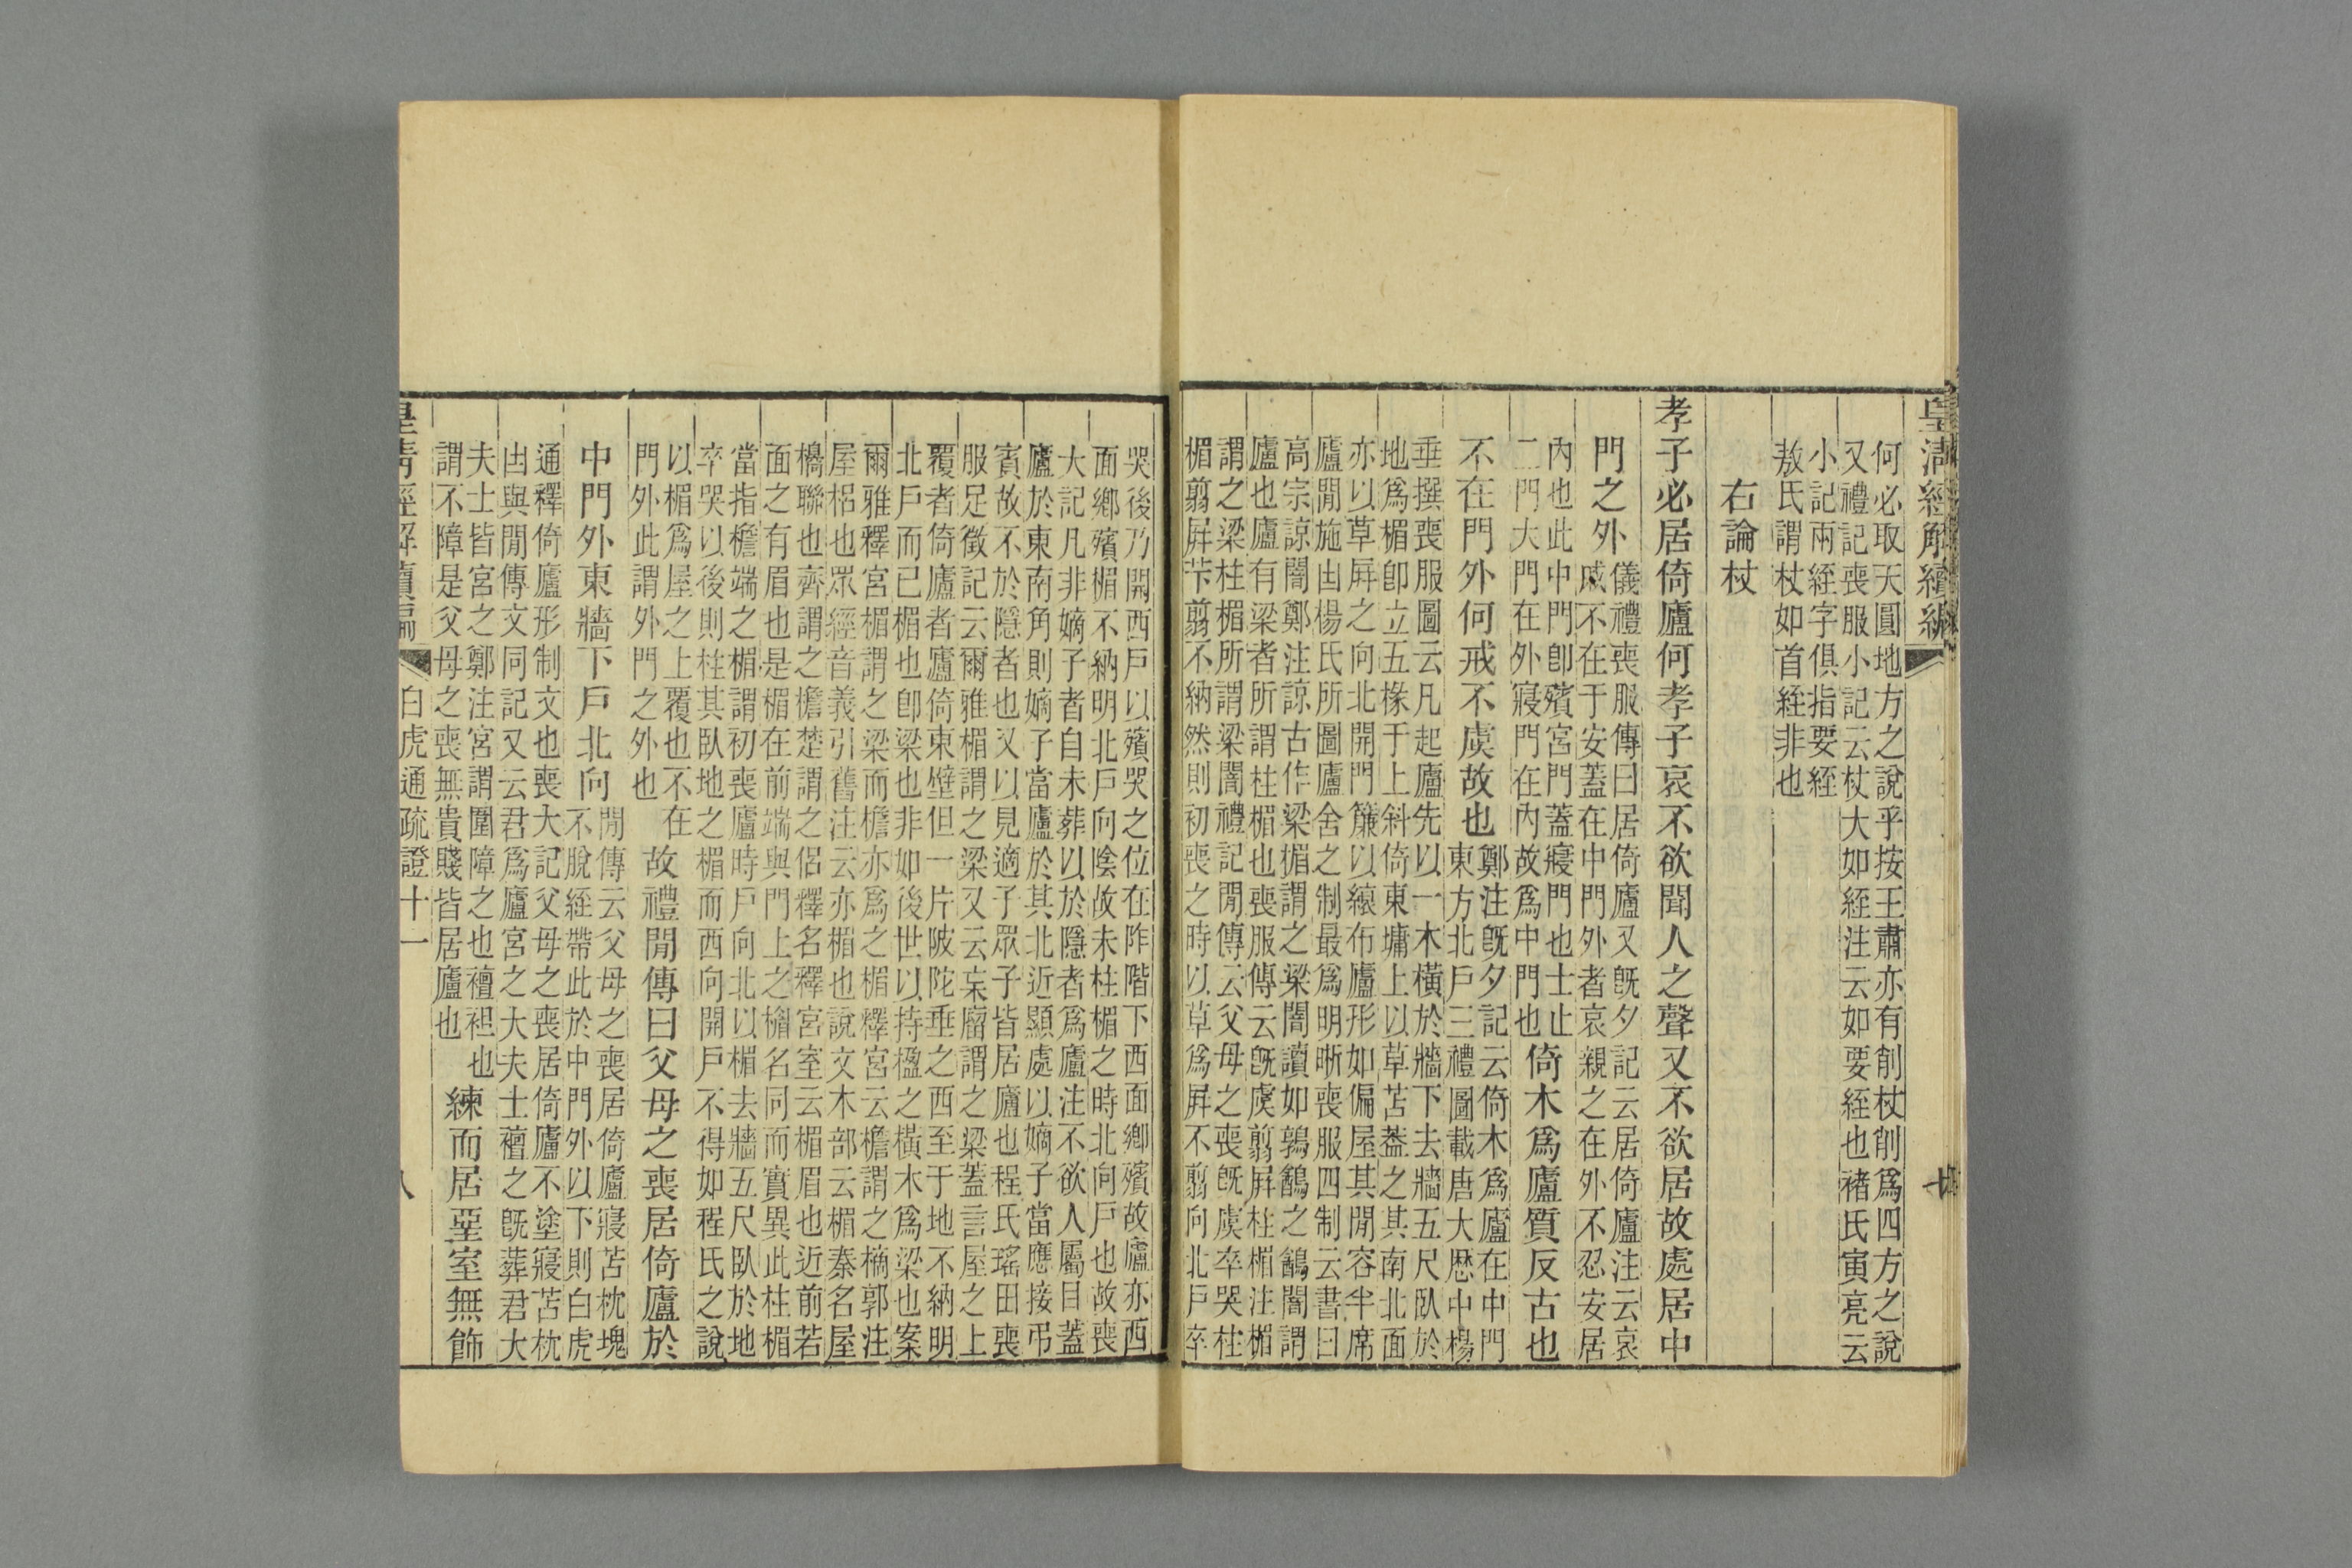 皇清經解續編
何必取天圓地方之說乎按王肅亦有削杖削爲四方之說
又禮記喪服小記云杖大如絰注云如要絰也褚氏寅亮云
小記兩絰字俱指要絰
敖氏謂杖如首絰非也
右論杖
孝子必居倚廬何孝子哀不欲聞人之聲又不欲居故處居中
門之外
儀禮喪服傳曰居倚廬又旣夕記云居倚廬注云哀
戚不在于安蓋在中門外者哀親之在外不忍安居
內也此中門卽殯宮門蓋寢門也士止
二門大門在外寢門在內故爲中門也
倚木爲廬質反古也
不在門外何戒不虞故也
鄭注旣夕記云倚木爲廬在中門
東方北戶三禮圖載唐大厯中楊
垂撰喪服圖云凡起廬先以一木橫於牆下去牆五尺臥於
地爲楣卽立五椽于上斜倚東墉上以草苫葢之其南北面
亦以草屏之向北開門簾以縗布廬形如偏屋其閒容半席
廬閒施凷楊氏所圖廬舍之制最爲明晰喪服四制云書曰
高宗諒闇鄭注諒古作梁楣謂之梁闇讀如鶉鷂之鷂闇謂
廬也廬有梁者所謂柱楣也喪服傳云旣虞翦屏柱楣注楣
謂之梁柱楣所謂梁闇禮記閒傳云父母之喪旣虞卒哭柱
楣翦屏芐翦不納然則初喪之時以草爲屏不翦向北戶卒
哭後乃開西戶以殯哭之位在阼階下西面鄉殯故廬亦西
面鄉殯楣不納明北戶向陰故未柱楣之時北向戶也故喪
大記凡非嫡子者自未葬以於隱者爲廬注不欲人屬目蓋
廬於東南角則嫡子當廬於其北近顯處以嫡子當應接弔
賓故不於隱者也又以見適子眾子皆居廬也程氏瑤田喪
服足徵記云爾雅楣謂之梁又云杗廇謂之梁蓋言屋之上
覆者倚廬者廬倚東壁但一片陂陀垂之西至于地不納明
北戶而已楣也卽梁也非如後世以持楹之橫木爲梁也案
爾雅釋宮楣謂之梁而檐亦爲之楣釋宮云檐謂之樀郭注
屋梠也眾經音義引舊注云亦楣也說文木部云楣秦名屋
櫋聯也齊謂之檐楚謂之侶釋名釋宮室云楣眉也近前若
面之有眉也是楣在前端與門上之楣名同而實異此柱楣
當指檐端之楣謂初喪廬時戶向北以楣去牆五尺臥於地
卒哭以後則柱其臥地之楣而西向開戶不得如程氏之說
以楣爲屋之上覆也不在
門外此謂外門之外也
故禮閒傳曰父母之喪居倚廬於
中門外東牆下戶北向
閒傳云父母之喪居倚廬寢苫枕塊
不脫絰帶此於中門外以下則白虎
通釋倚廬形制文也喪大記父母之喪居倚廬不塗寢苫枕
凷與閒傳文同記又云君爲廬宮之大夫士襢之旣葬君大
夫士皆宮之鄭注宮謂圍障之也襢袒也
謂不障是父母之喪無貴賤皆居廬也
練而居堊室無飾
皇清經解續編
白虎通疏證十一
八